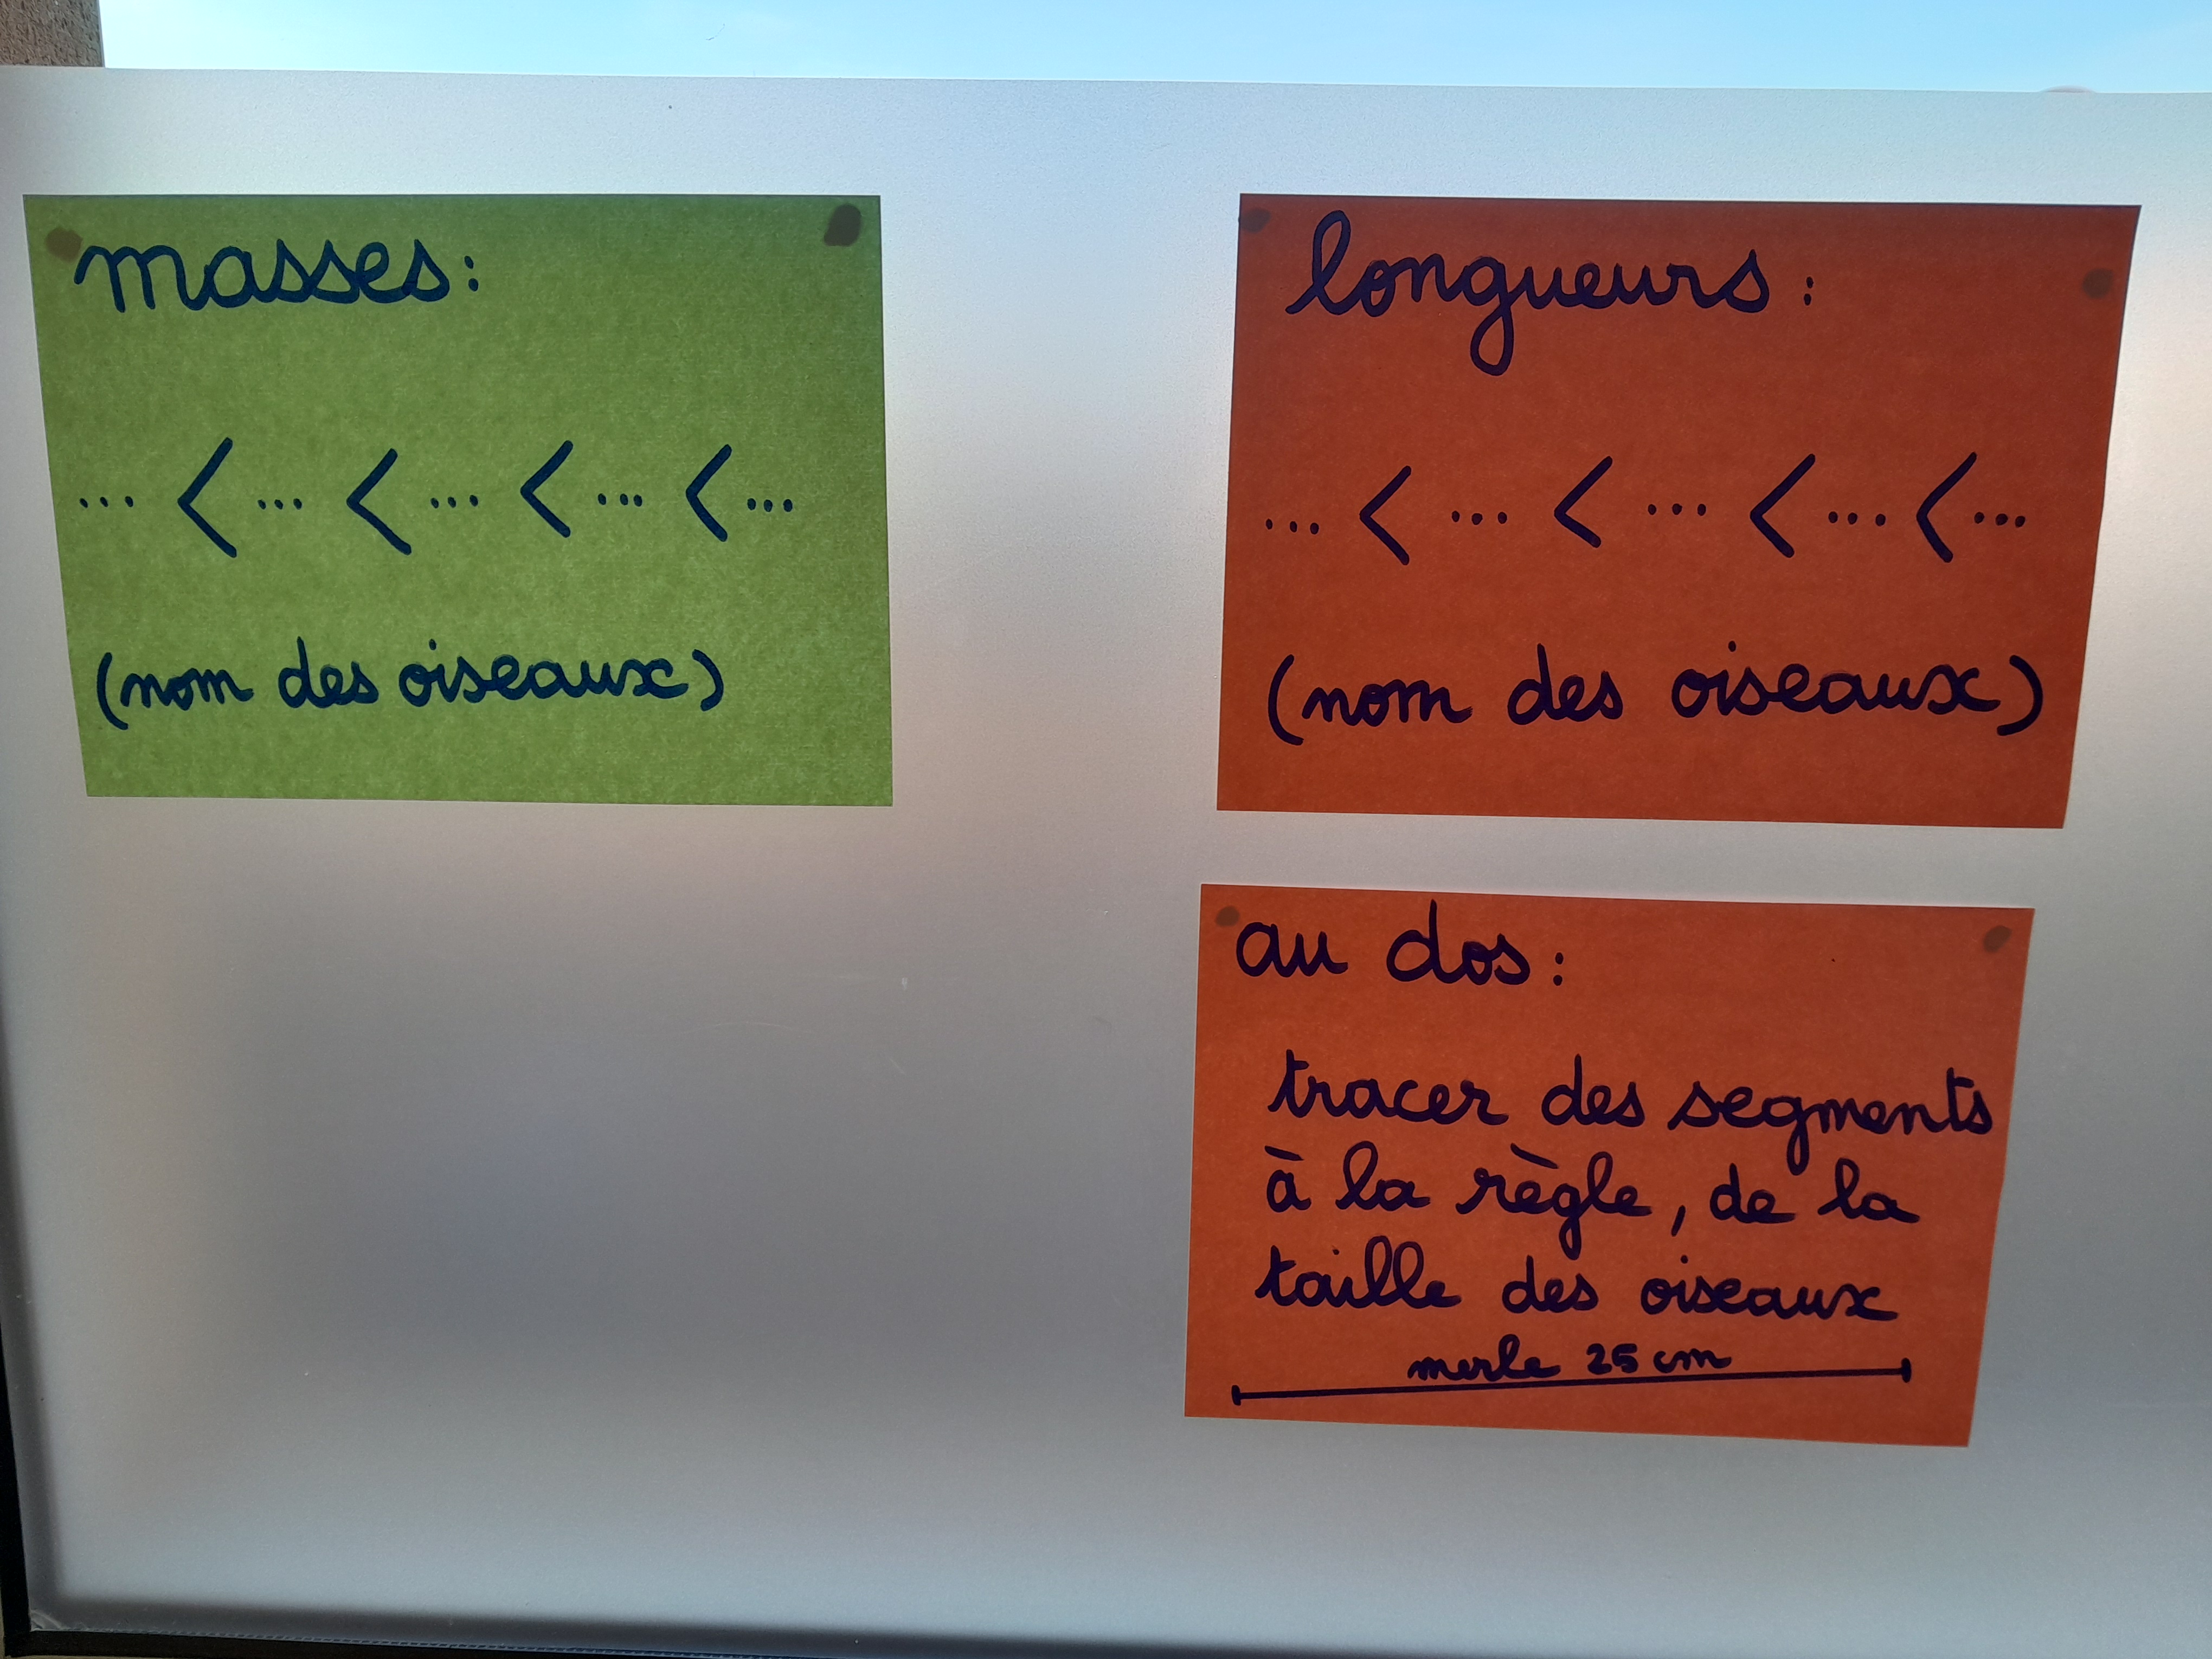 masses:
... < ... < ... < ... < ...
(nom des oiseaux)
longueurs :
... < ... < ... < ... < ...
(nom des oiseaux)
au dos :
tracer des segments
à la règle, de la
taille des oiseaux
merle 25 cm